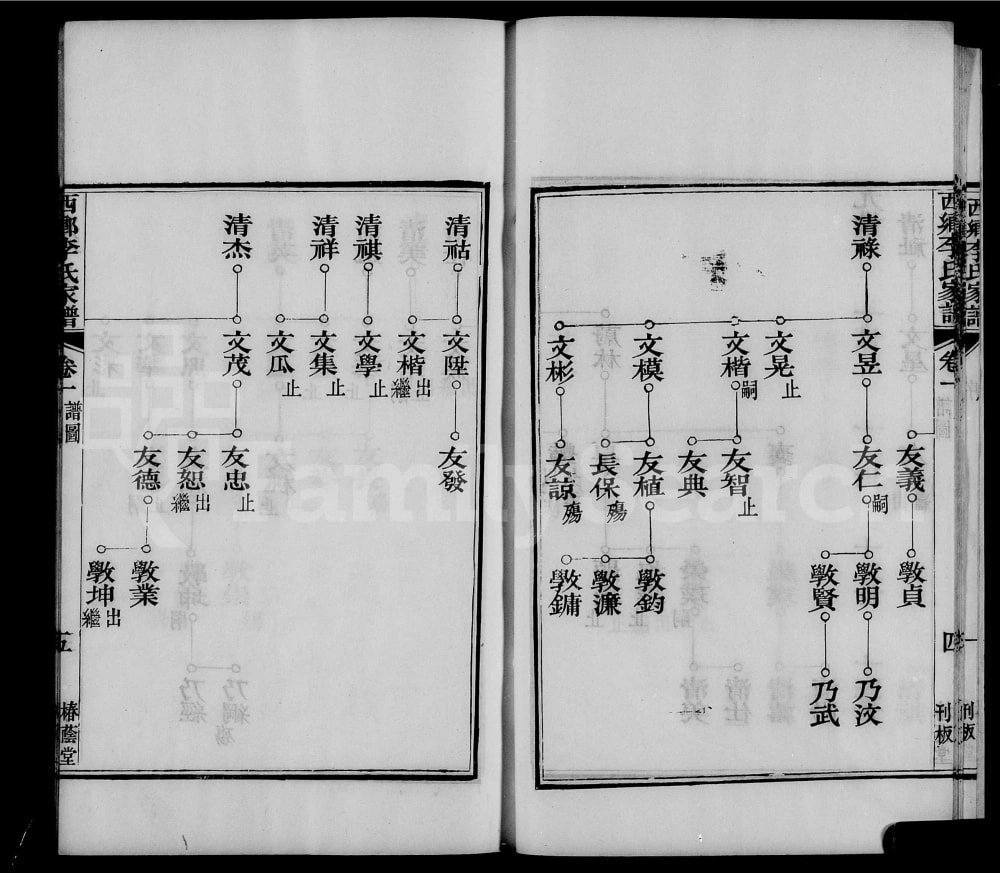 西鄉李氏家譜
卷一
譜圖
四
刊板
清祿
文昱
友仁 嗣
敩明
乃汶
敩賢
乃武
友義
敩貞
文晃 止
文楷 嗣
友智 止
友典
文模
友植
敩鈞
敩濂
敩鏞
長保 殤
文彬
友諒 殤
清祜
文陞
友發
文楷 出繼
清祺
文學 止
清祥
文集 止
文瓜 止
清杰
文茂
友忠 止
友恕 出繼
友德
敩業
敩坤 出繼
西鄉李氏家譜
卷一
譜圖
五
椿蔭堂
FamilySearch